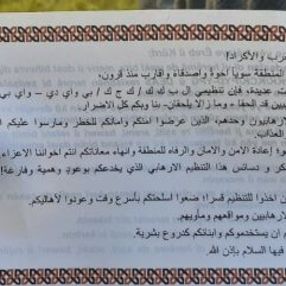 عرب والأكراد!
المنطقة سوياً اخوة وأصدقاء وأقارب منذ قرون،
ت عديدة، فإن تنظيمي ال ب ك ك / ك ج ك / بي واي دي - واي بي
بين قد الحقا - وما زالا يلحقان - بنا وبكم كل الاضرار.
الارهابيون وحدهم، الذين عرضوا امنكم وأمانكم للخطر ومارسوا عليكم ا
العذاب.
و! إعادة الامن والامان والرفاه للمنطقة وانهاء معاناتكم انتم اخواننا الاعزاء
كر و دسائس هذا التنظيم الارهابي الذي يخدعكم بوعود وهمية وفارغة!
ن اخذوا للتنظيم قسرا؛ ضعوا اسلحتكم بأسرع وقت وعودوا لأهاليكم.
لارهابيين ومواقعهم ومآويهم.
م ان يستخدموكم وابنائكم كدروع بشرية.
فيها السلام بإذن الله.